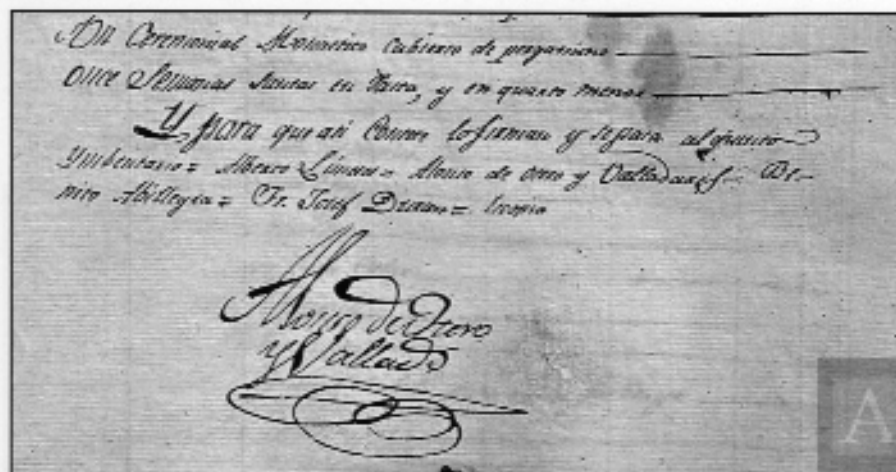 Un Ceremonial Monastico cubierto de pergamino
Once Semanas Santas en Pasta, y en quarto menor
Y para que asi Conste lo firman y separa al
Ymbentario = Linan = Alonso de Otero y Valladares = Be-
nito = Fr. Josef Duran = Copia
Alonso de Otero
y Vallads
A